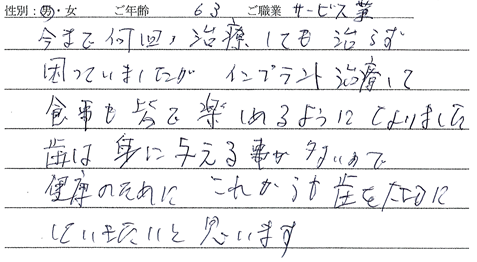 性別：男・女 ご年齢 63 ご職業 サービス業
今まで何回、治療しても治らず
困っていましたが インプラント治療して
食事も皆で楽しめるようになりました
歯は身に与える事が多いので
健康のために これからも歯を大切に
していきたいと思います